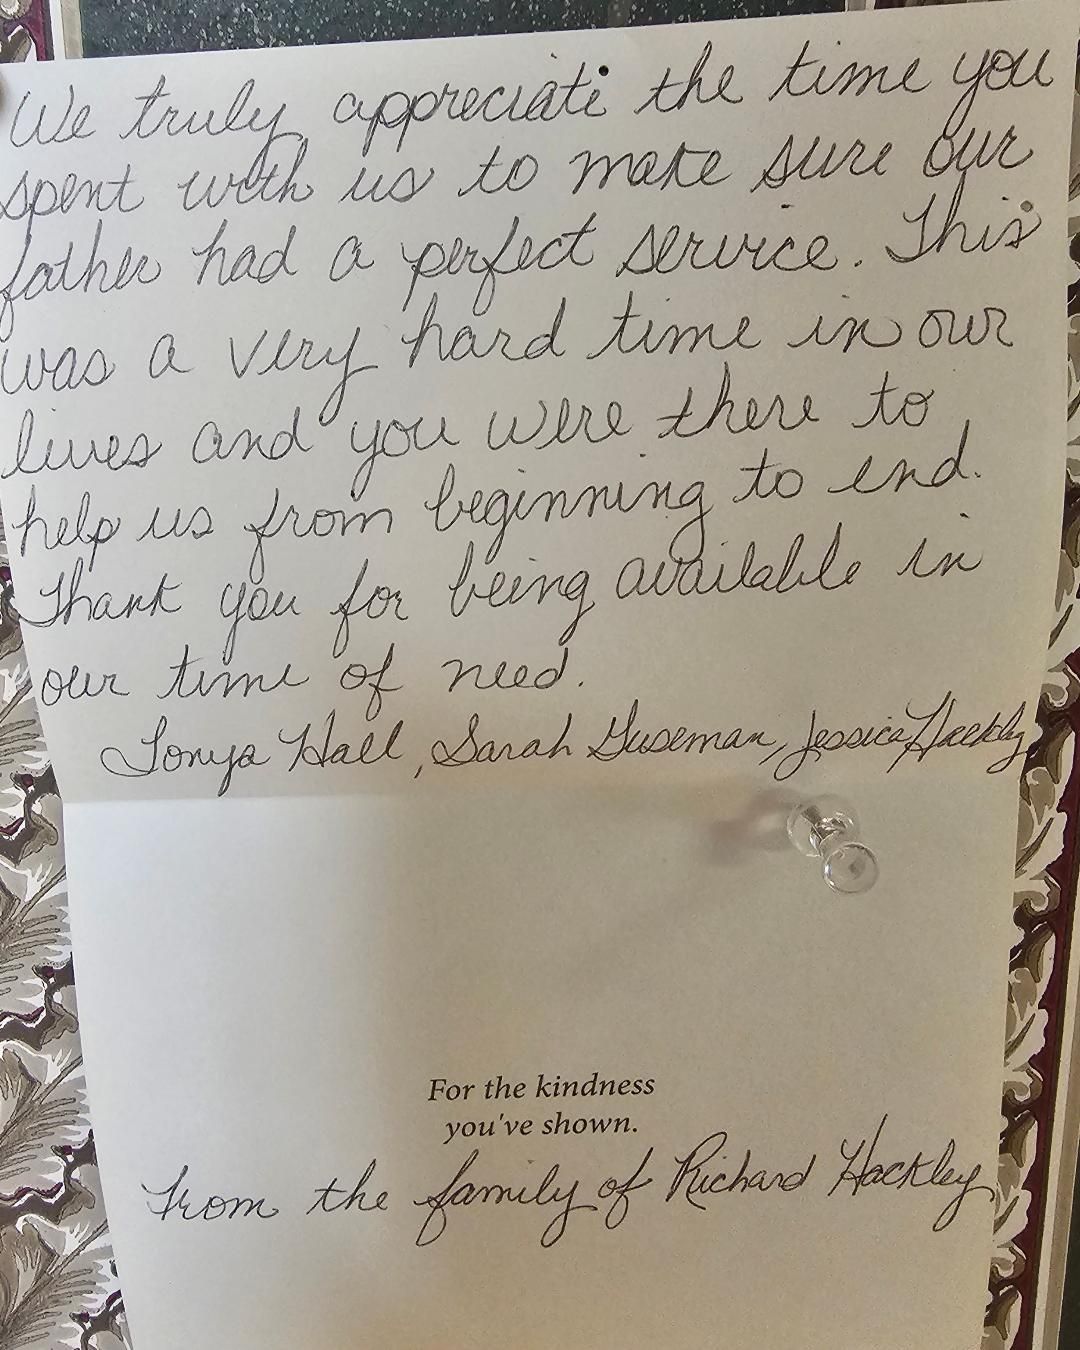 We truly appreciate the time you
spent with us to make sure our
father had a perfect service. This
was a very hard time in our
lives and you were there to
help us from beginning to end.
Thank you for being available in
our time of need.
Tonya Hall, Sarah Guseman, Jessica Hackley
For the kindness
you've shown.
From the family of Richard Hackley